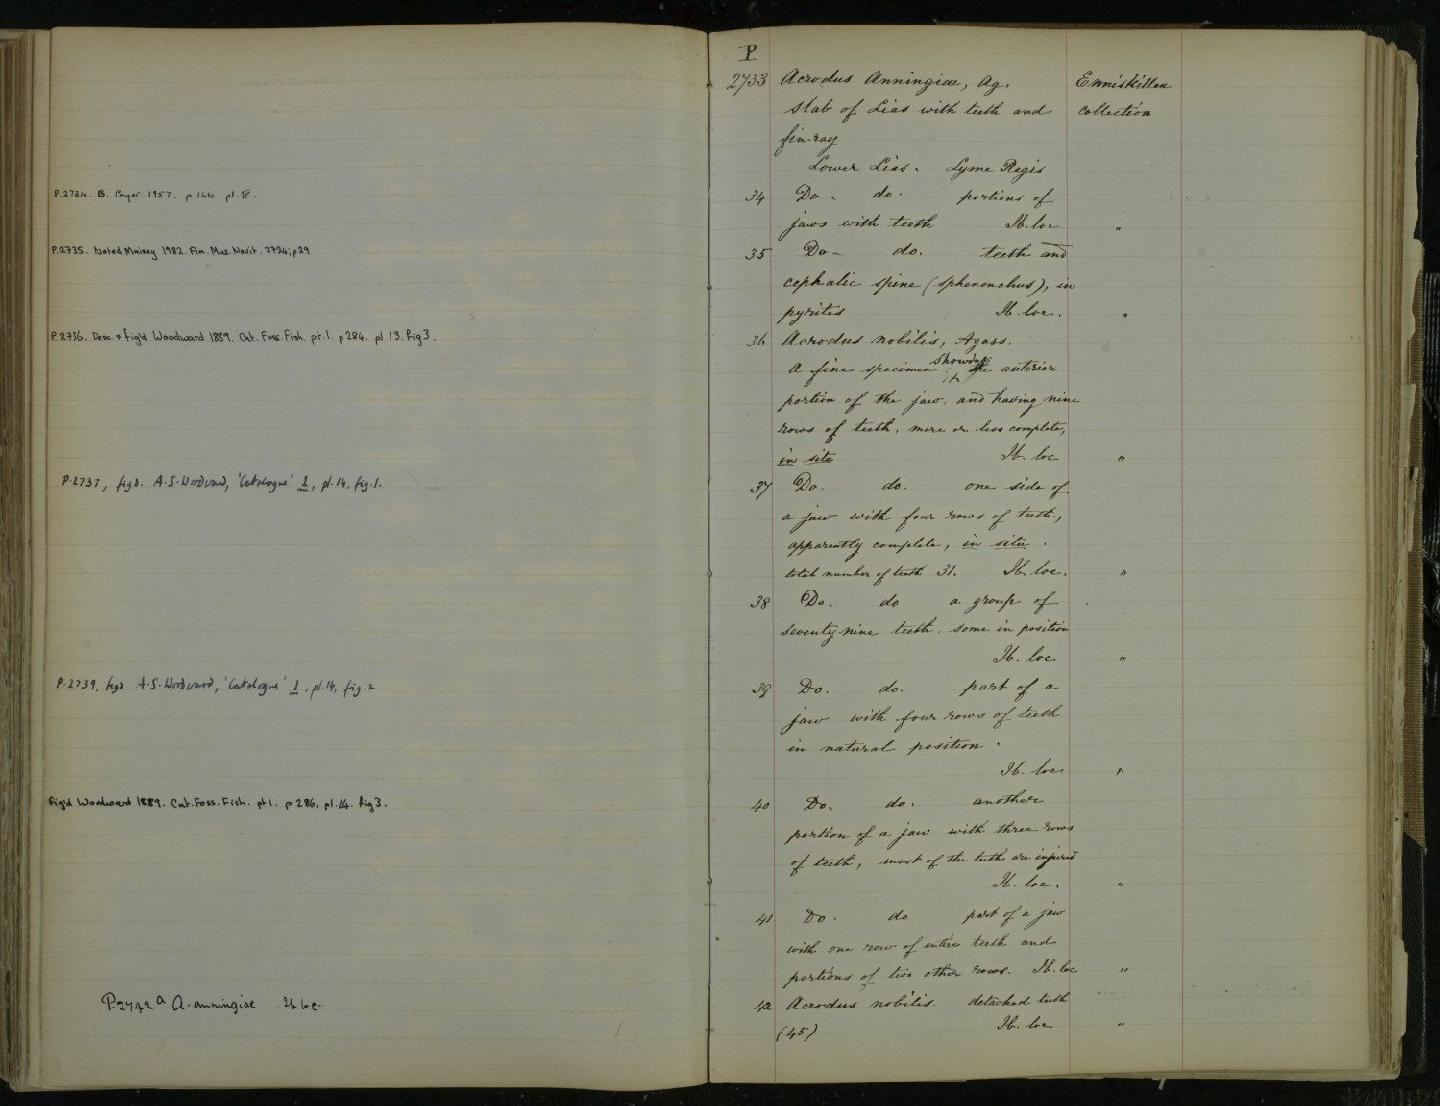 P.2734. B. Peyer. 1957. p pl. IV.
P.2735. Noted Maisey 1982. Am. Mus. Novit. 2724; p29
P.2736. Desc. & fig'd Woodward 1889. Cat. Foss. Fish. pt. 1. p 284. pl 13. fig 3.
P.2737, figd. A.S. Woodward, 'Catalogue' 1, pl. 14, fig. 1.
P.2739, figd A.S. Woodward, 'Catalogue' 1, pl. 14, fig. 2
Fig'd Woodward 1889. Cat. Foss. Fish. pt 1. p 286, pl. 14. fig 3.
P.2742a A. anningiae Ib loc.
P
2733 Acrodus Anningiæ, Ag. Enniskillen
slab of Lias with teeth and collection
fin-ray
Lower Lias. Lyme Regis
34 Do. do. portions of
jaws with teeth Ib. loc "
35 Do. do. teeth and
cephalic spine (sphenonchus), in
pyrites Ib. loc. "
36 Acrodus nobilis, Agass.
A fine specimen showing the anterior
portion of the jaw, and having nine
rows of teeth, more or less complete,
in situ Ib. loc "
37 Do. do. one side of
a jaw with four rows of teeth,
apparently complete, in situ.
total number of teeth 31. Ib. loc. "
38 Do. do a group of
seventy nine teeth. some in position
Ib. loc "
39 Do. do. part of a
jaw with four rows of teeth
in natural position.
Ib. loc "
40 Do. do. another
portion of a jaw with three rows
of teeth, most of the teeth are injured
Ib. loc. "
41 Do. do part of a jaw
with one row of entire teeth and
portions of two other rows. Ib. loc "
42 Acrodus nobilis. detached teeth
(45) Ib. loc "